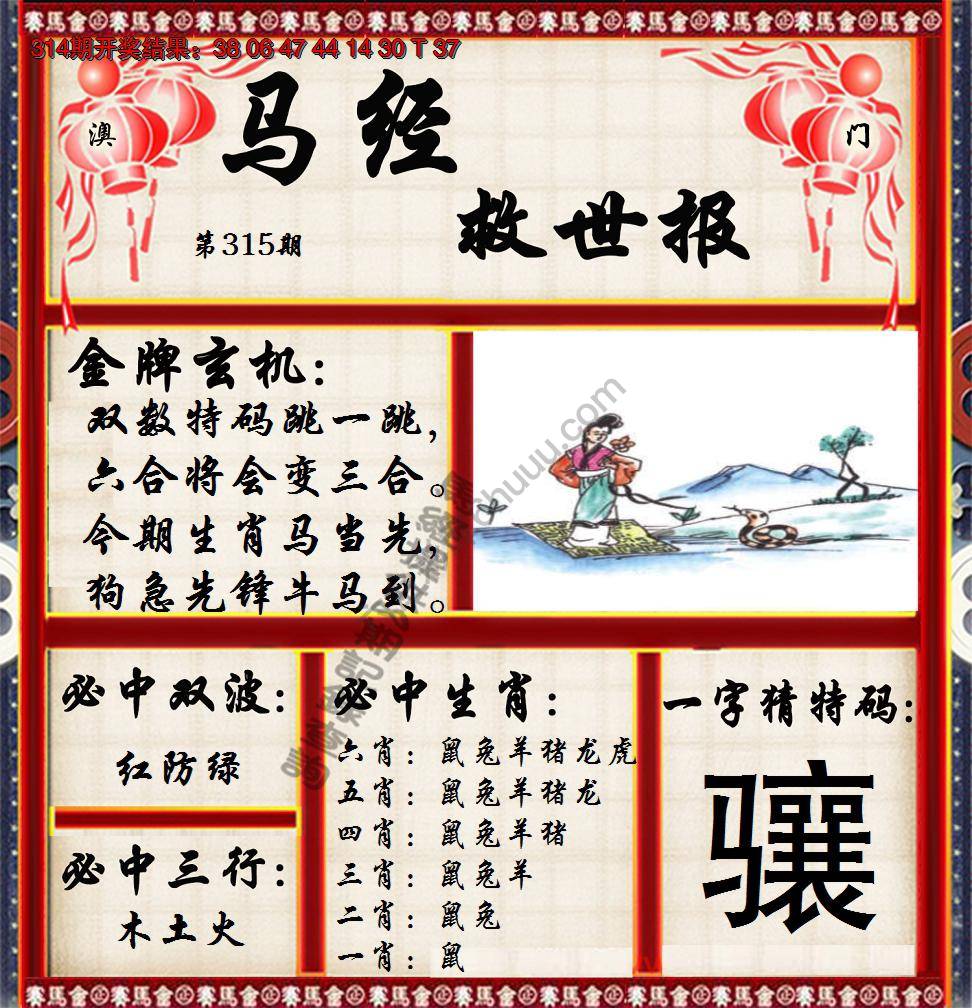 314期开奖结果：38 06 47 44 14 30 T 37
澳
门
马经
救世报
第315期
金牌玄机：
双数特码跳一跳，
六合将会变三合。
今期生肖马当先，
狗急先锋牛马到。
必中双波：
红防绿
必中三行：
木土火
必中生肖：
六肖：鼠兔羊猪龙虎
五肖：鼠兔羊猪龙
四肖：鼠兔羊猪
三肖：鼠兔羊
二肖：鼠兔
一肖：鼠
一字猜特码：
骧